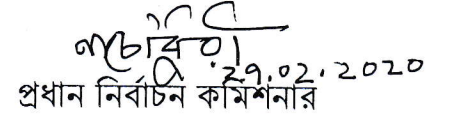 ২৭.০২.2020
প্রধান নির্বাচন কমিশনার